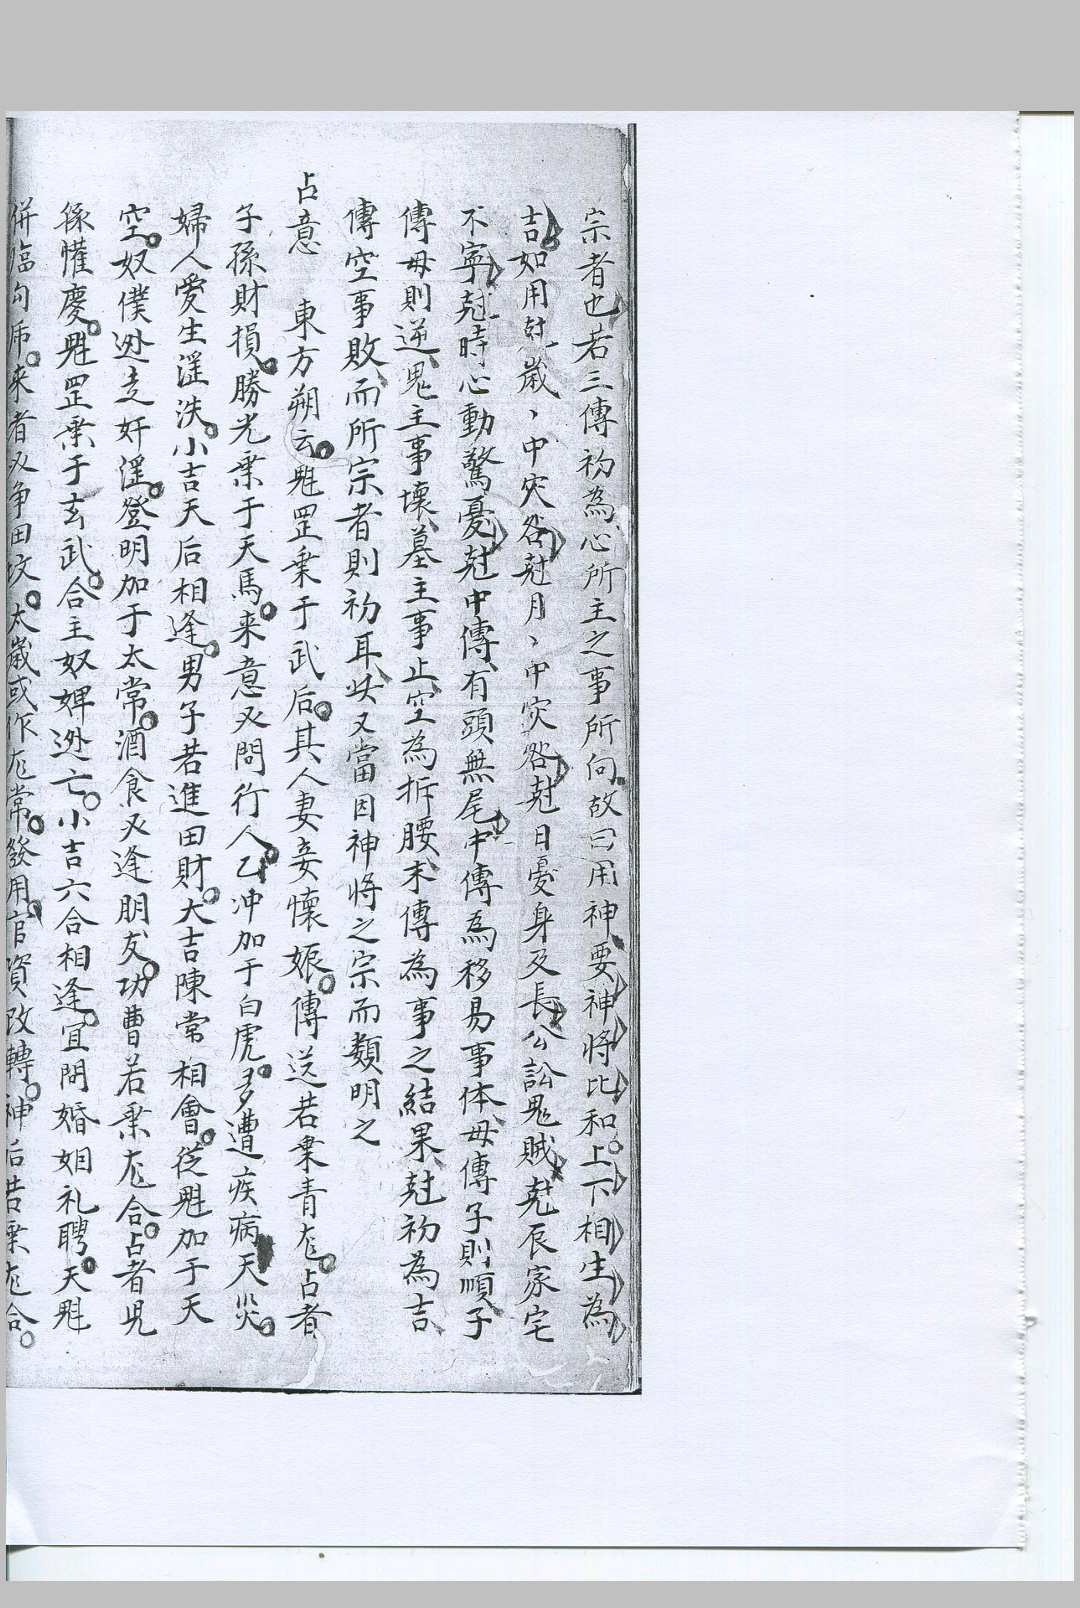 宗者也若三傳初為心所主之事所向故曰用神要神將比和上下相生為
吉如用尅歲、中灾咎尅月、中灾咎尅日憂身及長公訟鬼賊尅辰家宅
不寧尅時心動驚憂尅中傳有頭無尾中傳為移易事体母傳子則順子
傳母則逆鬼主事壞墓主事止空為拆腰末傳為事之結果尅初為吉
傳空事敗而所宗者則初耳此又當因神將之宗而類明之
占意　東方朔云魁罡乗于武后其人妻妾懷娠傳送若乗青龙占者
子孫財損勝光乗于天馬来意又問行人乙冲加于白虎多遭疾病天災
婦人愛生淫泆小吉天后相逢男子若進田財大吉陳常相會從魁加于天
空奴僕迯走奸淫登明加于太常酒食又逢朋友功曹若乗龙合占者児
孫懽慶魁罡乗于玄武合主奴婢迯亡小吉六合相逢宜問婚姻礼聘天魁
併臨勾乕来者又争田坟太歲或作龙常發用官資改轉神后若乗龙合